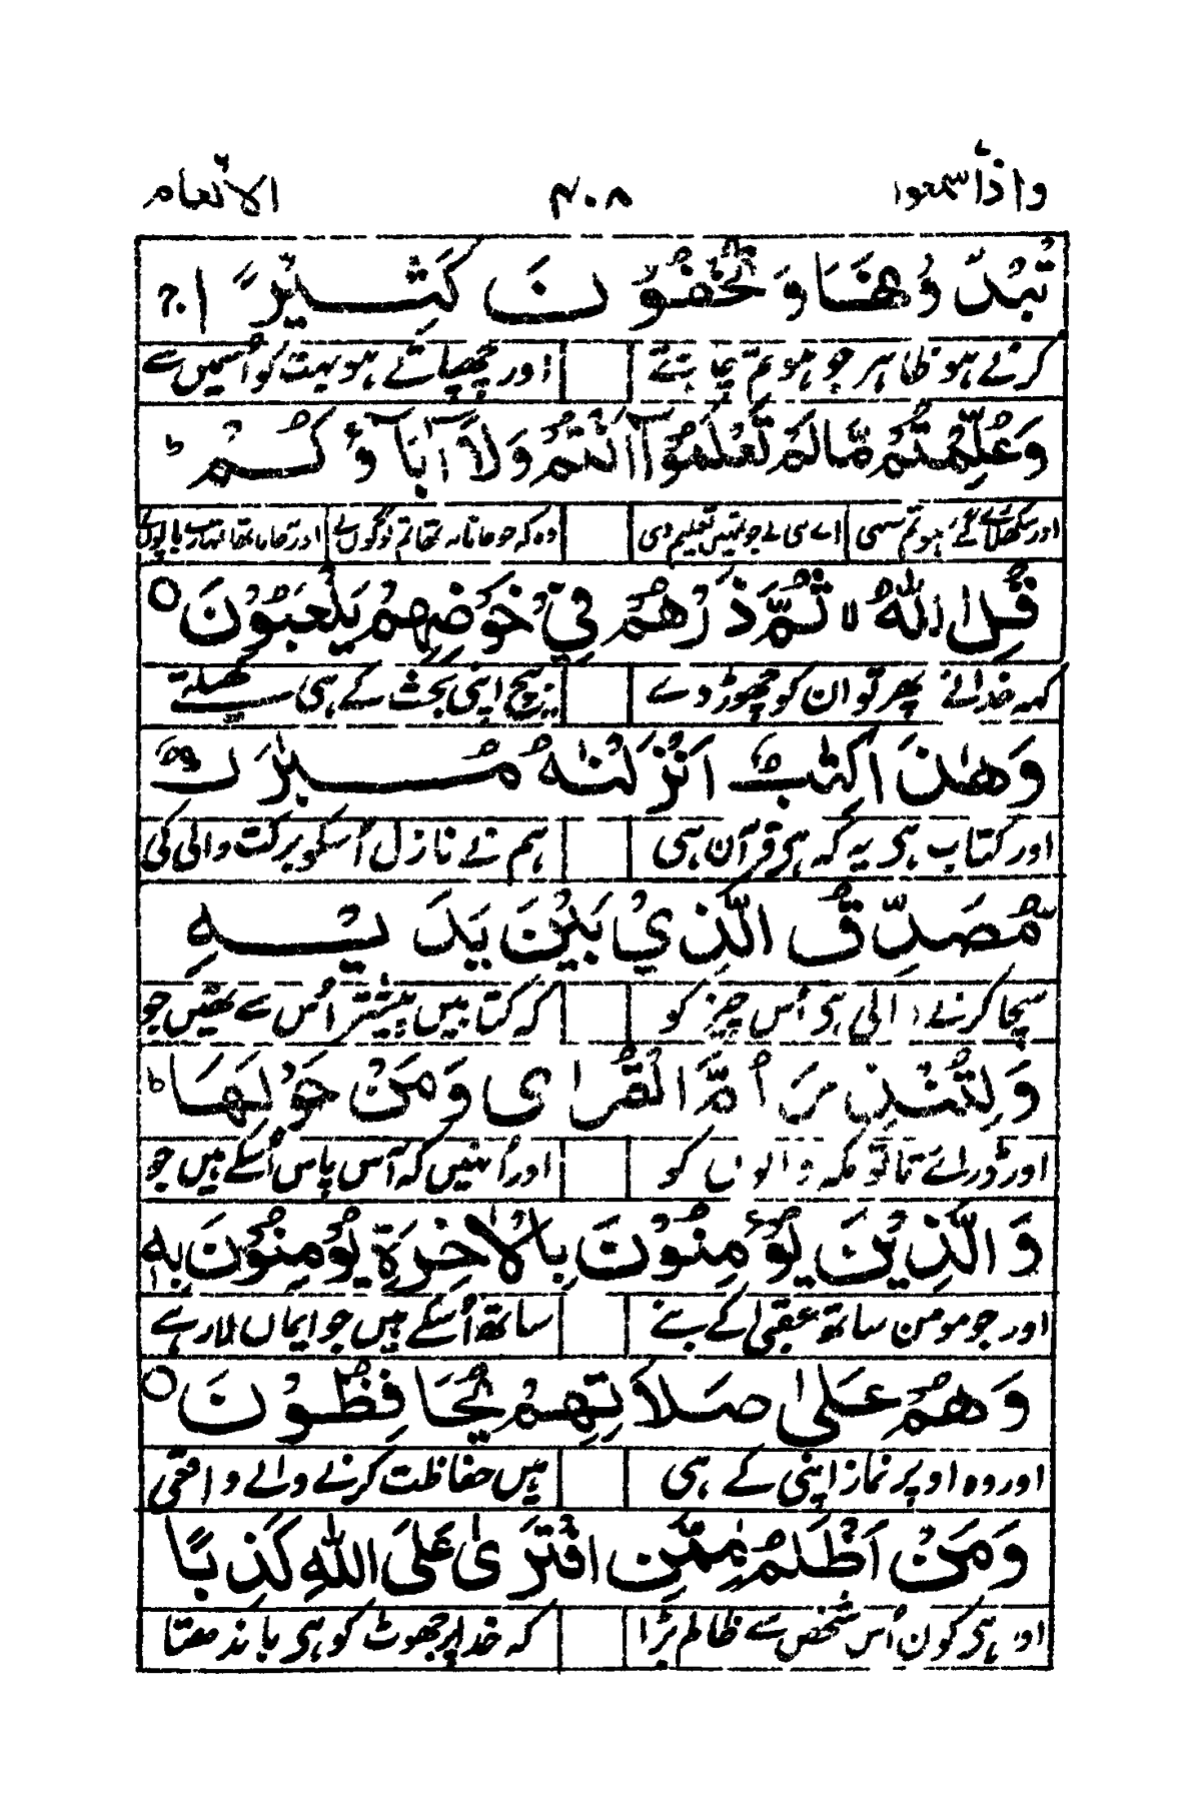 واذا سمعوا ۴۰۸ الانعام
تُبْدُوْنَهَا وَتُخْفُوْنَ كَثِيْرًا ج
کرتے ہو ظاہر جو ہو تم چاہتے اور چھپاتے ہو بہت کو اُسمیں سے
وَعُلِّمْتُمْ مَّالَمْ تَعْلَمُوْٓا اَنْتُمْ وَلَآ اٰبَآؤُكُمْ ط
اور سکھلائے گئے ہو تم سبھی وہ کہ جو جانا نہ تھا تم لوگوں نے
قُلِ اللّٰهُ لا ثُمَّ ذَرْهُمْ فِيْ خَوْضِهِمْ يَلْعَبُوْنَ ○
کہہ خدا نے پھر تو ان کو چھوڑ دے بیچ اپنی بحث کے ہی کھیلتے
وَهٰذَا كِتٰبٌ اَنْزَلْنٰهُ مُبٰرَكٌ
اور کتاب ہی یہ کہ ہی قرآن ہی ہم نے نازل اُسکو برکت والی کی
مُّصَدِّقُ الَّذِيْ بَيْنَ يَدَيْهِ
سچا کرنے والی ہی اُس چیز کو کہ کتابیں پیشتر اُس سے تھیں جو
وَلِتُنْذِرَ اُمَّ الْقُرٰى وَمَنْ حَوْلَهَا ط
اور ڈرائے تا تو مکہ والوں کو اور اُنہیں کہ آس پاس اُسکے ہیں جو
وَالَّذِيْنَ يُؤْمِنُوْنَ بِالْاٰخِرَةِ يُؤْمِنُوْنَ بِهٖ
اور جو مومن ساتھ عقبیٰ کے بنے ساتھ اُسکے ہیں جو ایماں لا رہے
وَهُمْ عَلٰى صَلَاتِهِمْ يُحَافِظُوْنَ ○
اور وہ اوپر نماز اپنی کے ہی ہیں حفاظت کرنے والے واقعی
وَمَنْ اَظْلَمُ مِمَّنِ افْتَرٰى عَلَى اللّٰهِ كَذِبًا
اور ہی کون اُس شخص سے ظالم بڑا کہ خدا پر جھوٹ کو ہی باندھتا